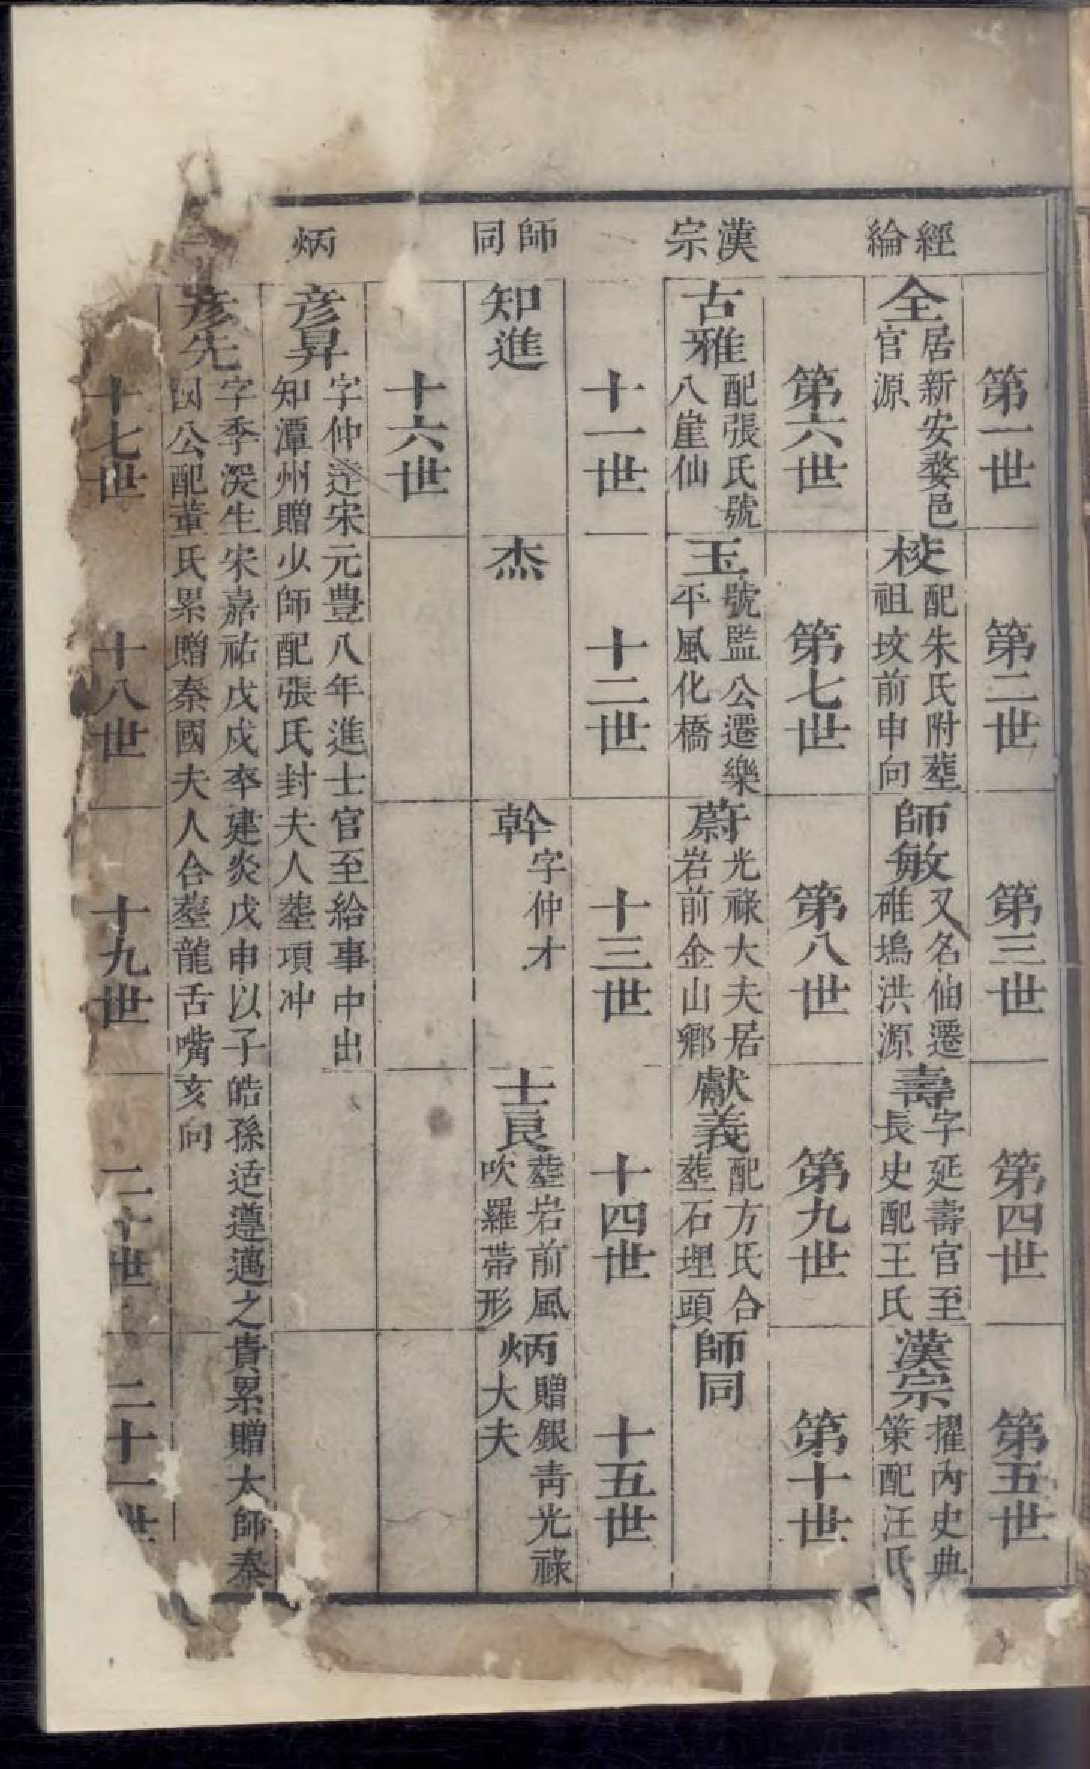 第一世
第二世
第三世
第四世
第五世
經綸
全
居新安婺邑
官源
校
配朱氏附塟
祖坟前申向
師敏
又名伷遷
碓塢洪源
壽
字延壽官至
長史配王氏
漢宗
擢內史典
策配汪氏
第六世
第七世
第八世
第九世
第十世
漢宗
古雅
配張氏號
八崖仙
玉
號監公遷樂
平風化橋
蔚
光祿大夫居
岩前金山鄉
獻義
配方氏合
塟石埋頭
師同
十一世
十二世
十三世
十四世
十五世
師同
知進
杰
幹
字仲才
士良
塟岩前風
吹羅帶形
炳
贈銀青光祿
大夫
十六世
炳
彥昇
字仲逵宋元豊八年進士官至給事中出
知潭州贈少師配張氏封夫人塟項冲
彥先
字季深生宋嘉祐戊戌卒建炎戊申以子皓孫适遵邁之貴累贈太師秦
国公配董氏累贈秦國夫人合塟龍舌嘴亥向
十七世
十八世
十九世
二十世
二十一世